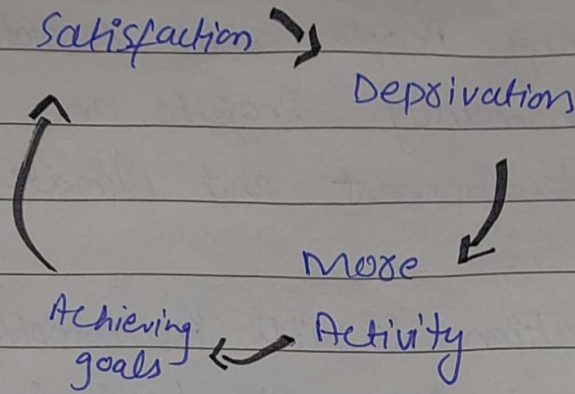 Satisfaction
Deprivation
More
Activity
Achieving
goals